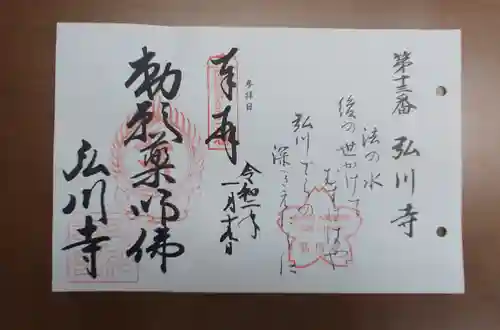 第十三番
弘川寺
法の水
後の世かけて
むすばはや
弘川でらの
深きえにに
参拝日
奉拝
令和二年
一月十九日
勅願薬師佛
弘川寺